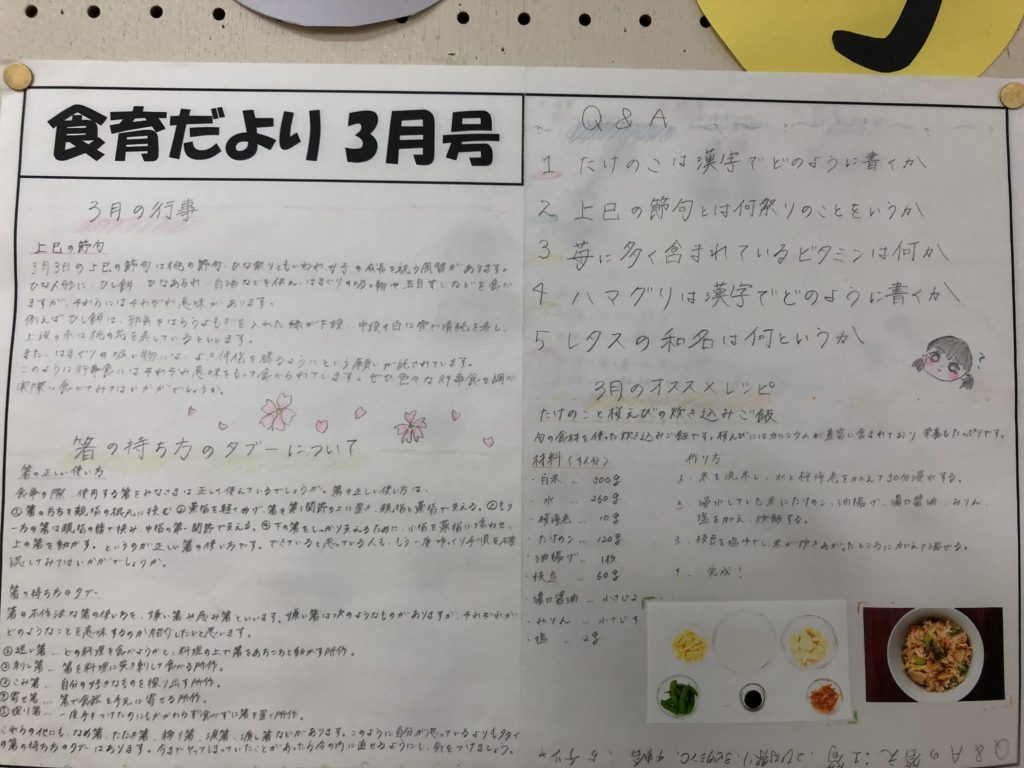 食育だより 3月号
3月の行事
上巳の節句
3月3日の上巳の節句は桃の節句、ひな祭りともいわれ、女子の成長を祝う風習があります。
ひな人形に、ひし餅、ひなあられ、白酒などを供え、はまぐりの吸い物や五目すしなどを食べ
ますが、それらにはそれぞれ意味があります。
例えばひし餅は、邪気をはらうよもぎを入れた緑が下段、中段の白は雪で清純を表し、
上段の赤は桃の花を表しているといいます。
また、はまぐりの吸い物には、よき伴侶を得るようにという願いが託されています。
このように行事食にはそれぞれ意味をもって食べられています。ぜひ色々な行事食を調べ
実際に食べてみてはいかがでしょうか。
箸の持ち方のタブーについて
箸の正しい使い方
食事の際、使用する箸をみなさまは正しく使えているでしょうか。箸の正しい使い方は、
①箸の片方を親指の根元に挟む ②薬指を軽く曲げ、箸を第1関節の上に置き、親指と薬指で支える。③もう
一方の箸は親指の腹で挟み、中指の第一関節で支える。④下の箸をしっかり支えるために、小指を薬指に添わせ、
上の箸を動かす。というのが正しい箸の使い方です。できていると思っている人も、もう一度ゆっくり手順を確
認してみてはいかがでしょうか。
箸の持ち方のタブー
箸の不作法な箸の使い方を、嫌い箸や忌み箸といいます。嫌い箸は次のようなものがありますが、それぞれが
どのようなことを意味するのか紹介したいと思います。
①迷い箸…どの料理を食べようかと、料理の上で箸をあちこちと動かす所作。
②刺し箸…箸を料理に突き刺して食べる所作。
③こみ箸…自分の好きなものを探り出す所作。
④寄せ箸…箸で食器を手元に寄せる所作。
一度手をつけたのにもかかわらず食べずに箸を置く所作。
これらの他にも、なめ箸、たたき箸、移り箸、涙箸、渡し箸などがあります。このように自分が思っているよりも多くの
の箸の持ち方のタブーはあります。今までやってしまっていたことがあったら今の内に直せるようにし、気をつけましょう。
Q&A
1 たけのこは漢字でどのように書くか
2 上巳の節句とは何祭りのことをいうか
3 苺に多く含まれているビタミンは何か
4 ハマグリは漢字でどのように書くか
5 レタスの和名は何というか
3月のオススメレシピ
たけのこと桜えびの炊き込みご飯
旬の食材を使った炊き込みご飯です。桜えびにはカルシウムが豊富に含まれており、栄養もたっぷりです。
材料(4人分)
・白米 … 300g
・水 … 260g
・桜海老 … 10g
・たけのこ … 120g
・油揚げ … 1枚
・枝豆 … 60g
・濃口醤油 … 小さじ2
・みりん … 小さじ4
・塩 … 2g
作り方
1. 米を洗米し、水と桜海老を加えて30分浸水する。
2. 浸水していた米にたけのこ、油揚げ、濃口醤油、みりん、
塩を加え、炊飯する。
3. 枝豆を塩ゆでし、米が炊きあがったところに加えて混ぜる。
4. 完成!
Q&Aの答え:1.筍 2.ひな祭り 3.ビタミンC 4.蛤 5.チシャ